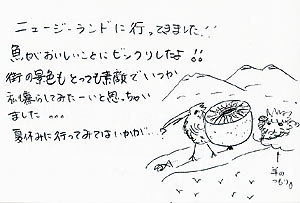 ニュージーランドに行ってきました!!
魚がおいしいことにビックリしたよ!!
街の景色もとっても素敵でいつか
私暮らしてみたーいと思っちゃい
ました…
夏休みに行ってみてはいかが…?
羊の
つもり。